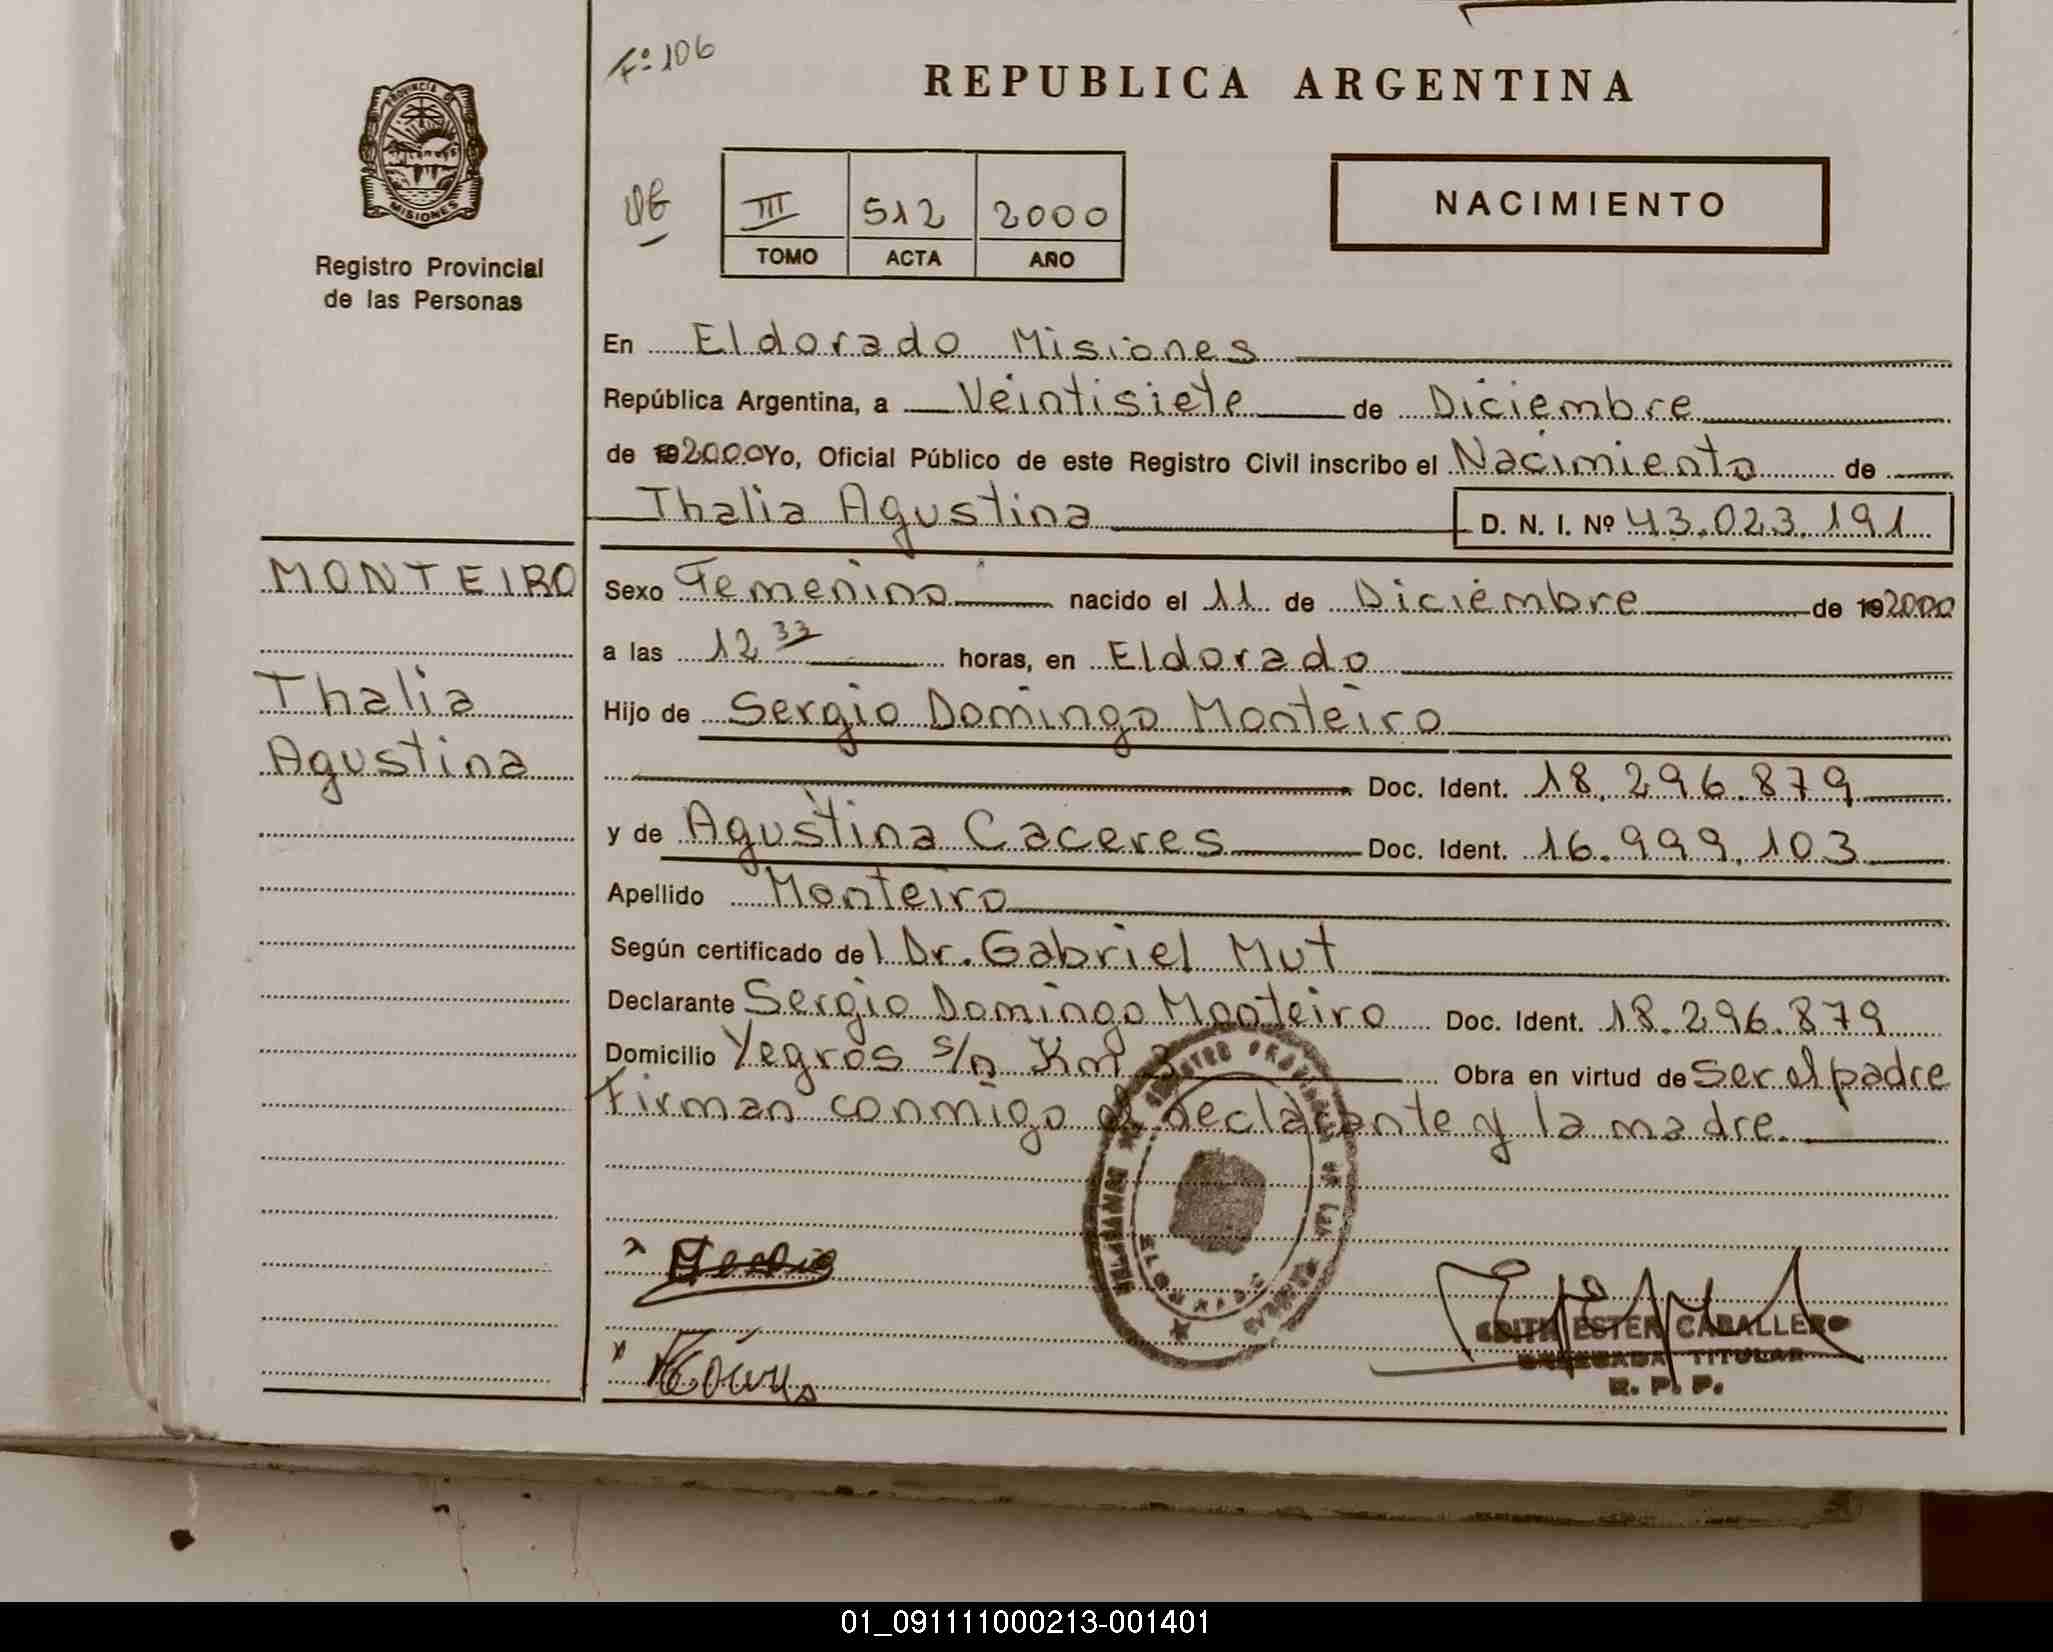 Fº 106
REPUBLICA ARGENTINA
PROVINCIA DE
MISIONES
Registro Provincial
de las Personas
III 512 2000
TOMO ACTA AÑO
NACIMIENTO
En Eldorado Misiones
República Argentina, a Veintisiete de Diciembre
de 192000 Yo, Oficial Público de este Registro Civil inscribo el Nacimiento de
Thalia Agustina D. N. I. Nº 43.023.191
MONTEIRO
Thalia
Agustina
Sexo Femenino nacido el 11 de Diciembre de 192000
a las 12 33 horas, en Eldorado
Hijo de Sergio Domingo Monteiro
Doc. Ident. 18.296.879
y de Agustina Caceres Doc. Ident. 16.999.103
Apellido Monteiro
Según certificado del Dr. Gabriel Mut
Declarante Sergio Domingo Monteiro Doc. Ident. 18.296.879
Domicilio Yegros s/n Km 3 Obra en virtud de Ser el padre
Firman conmigo el declarante y la madre.
EDITH ESTER CABALLERO
DELEGADA TITULAR
R. P. P.
01_091111000213-001401